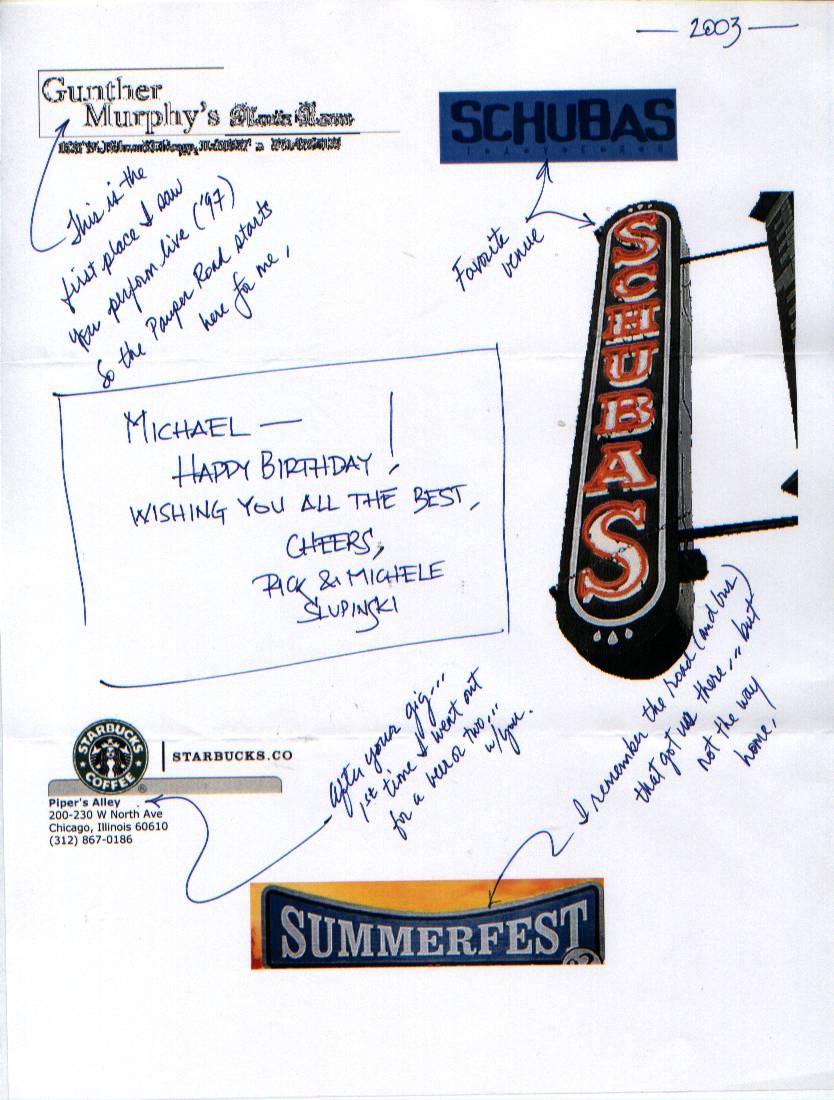 — 2003 —
Gunther
Murphy's
SCHUBAS
This is the
first place I saw
you perform live ('97)
So the Pauper Road starts
here for me,
Favorite
venue
SCHUBAS
MICHAEL —
HAPPY BIRTHDAY!
WISHING YOU ALL THE BEST,
CHEERS,
RICK & MICHELE
SLUPINSKI
After your gig...
1st time I went out
for a beer or two...
w/you.
I remember the road (and bus)
that got us there... but
not the way
home,
STARBUCKS
COFFEE
®
STARBUCKS.CO
Piper's Alley
200-230 W North Ave
Chicago, Illinois 60610
(312) 867-0186
SUMMERFEST